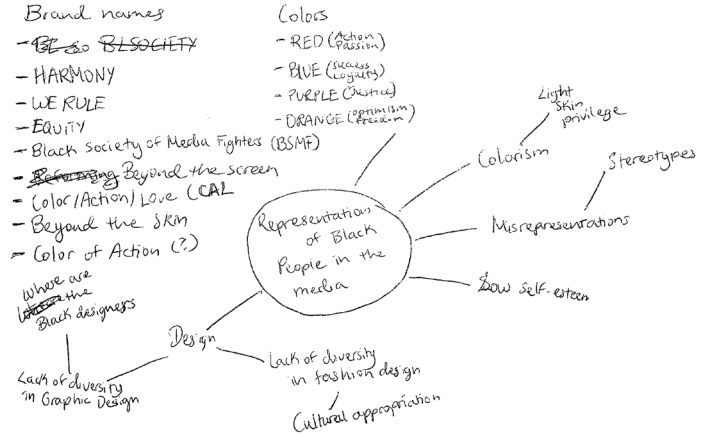 Brand names
- BL So BLSOCIETY
- HARMONY
- WE RULE
- EQUITY
- Black Society of Media Fighters (BSMF)
- Reforming Beyond the screen
- Color/Action/Love (CAL
- Beyond the skin
- Color of Action (?)
Colors
- RED (Action
Passion)
- BLUE (Success
Loyalty)
- PURPLE (Justice)
- ORANGE (optimism
freedom)
Light
skin
privilege
Colorism
Stereotypes
Misrepresentations
Low self-esteem
Representation
of Black
People in the
media
where are
the
Black designers
Design
Lack of diversity
in Graphic Design
Lack of diversity
in fashion design
Cultural appropriation